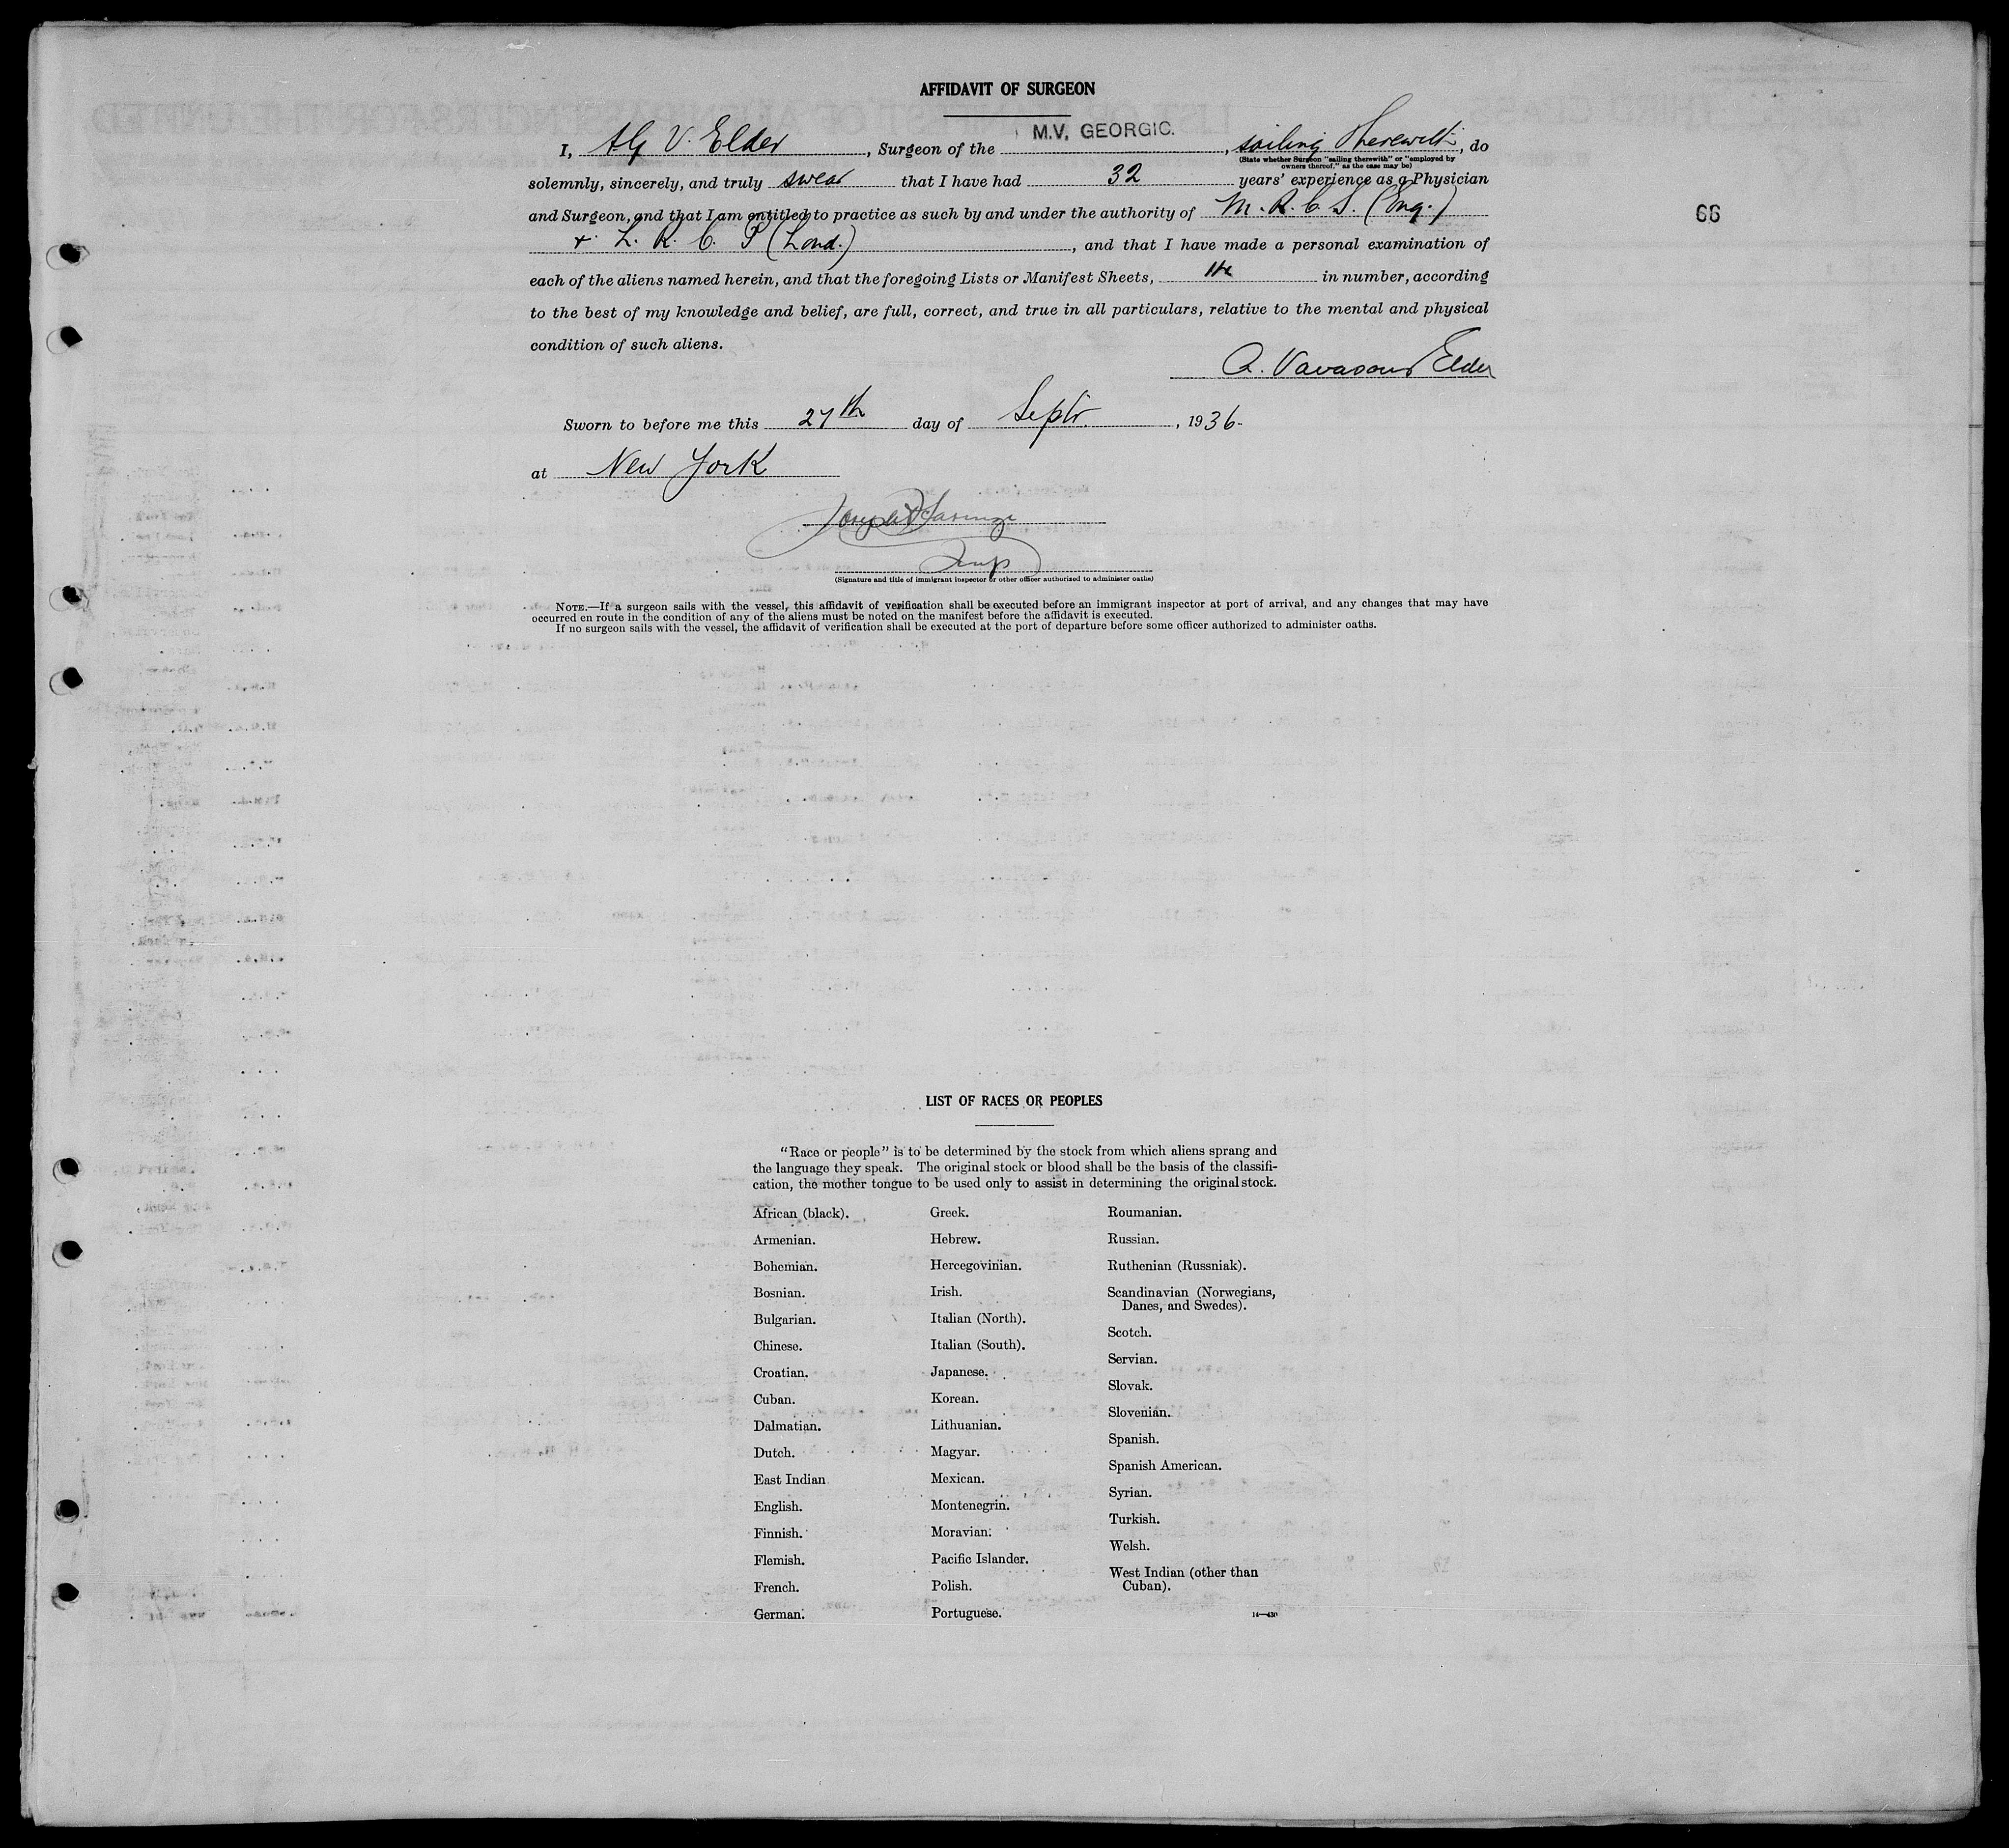 AFFIDAVIT OF SURGEON
I, Alf V. Elder, Surgeon of the M.V. GEORGIC., sailing therewith, do
(State whether Surgeon "sailing therewith" or "employed by
owners thereof," as the case may be)
solemnly, sincerely, and truly swear that I have had 32 years' experience as a Physician
and Surgeon, and that I am entitled to practice as such by and under the authority of M. R. C. S. (Eng.)
+ L. R. C. P (Lond.), and that I have made a personal examination of
66
each of the aliens named herein, and that the foregoing Lists or Manifest Sheets, in number, according
to the best of my knowledge and belief, are full, correct, and true in all particulars, relative to the mental and physical
condition of such aliens.
A. Vavasour Elder
Sworn to before me this 27th day of Septr., 1936.
at New York
(Signature and title of immigrant inspector or other officer authorized to administer oaths)
NOTE.—If a surgeon sails with the vessel, this affidavit of verification shall be executed before an immigrant inspector at port of arrival, and any changes that may have
occurred en route in the condition of any of the aliens must be noted on the manifest before the affidavit is executed.
If no surgeon sails with the vessel, the affidavit of verification shall be executed at the port of departure before some officer authorized to administer oaths.
LIST OF RACES OR PEOPLES
"Race or people" is to be determined by the stock from which aliens sprang and
the language they speak. The original stock or blood shall be the basis of the classifi-
cation, the mother tongue to be used only to assist in determining the original stock.
African (black).
Armenian.
Bohemian.
Bosnian.
Bulgarian.
Chinese.
Croatian.
Cuban.
Dalmatian.
Dutch.
East Indian
English.
Finnish.
Flemish.
French.
German.
Greek.
Hebrew.
Hercegovinian.
Irish.
Italian (North).
Italian (South).
Japanese.
Korean.
Lithuanian.
Magyar.
Mexican.
Montenegrin.
Moravian.
Pacific Islander.
Polish.
Portuguese.
Roumanian.
Russian.
Ruthenian (Russniak).
Scandinavian (Norwegians,
Danes, and Swedes).
Scotch.
Servian.
Slovak.
Slovenian.
Spanish.
Spanish American.
Syrian.
Turkish.
Welsh.
West Indian (other than
Cuban).